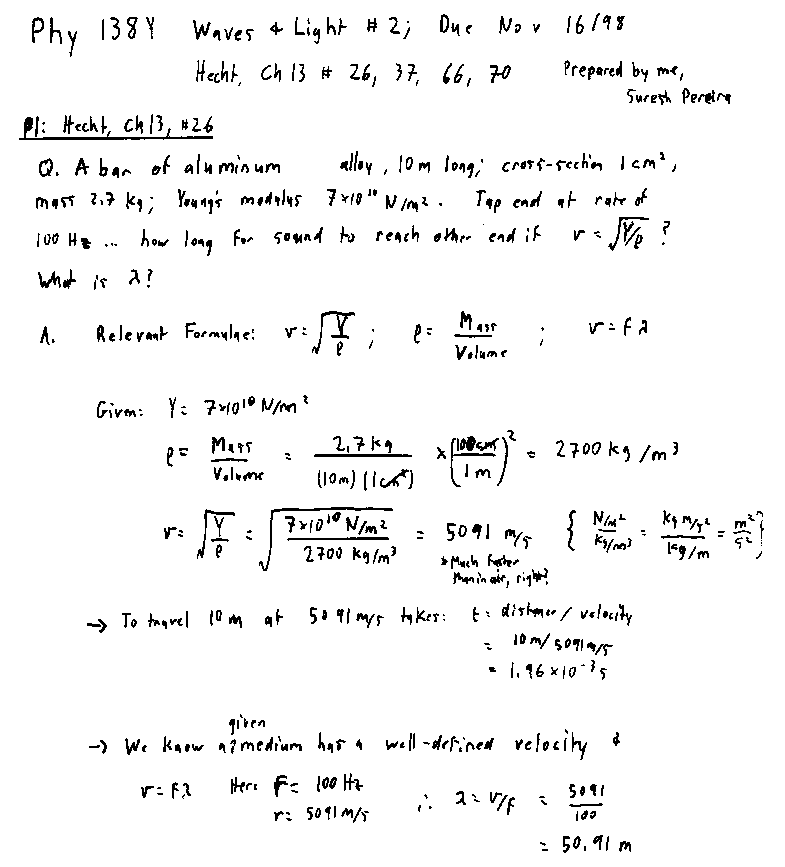 Phy 138Y Waves & Light #2; Due Nov 16/98
Hecht, Ch 13 # 26, 37, 66, 70 Prepared by me,
Suresh Pereira
P1: Hecht, Ch 13, #26
Q. A bar of aluminum alloy, 10 m long; cross-section 1 cm²,
mass 2.7 kg; Young's modulus 7×10¹⁰ N/m². Tap end at rate of
100 Hz ... how long for sound to reach other end if v = √(Y/ρ) ?
What is λ?
A. Relevant Formulae: v = √(Y/ρ) ; ρ = Mass/Volume ; v = fλ
Given: Y = 7×10¹⁰ N/m²
ρ = Mass/Volume = 2.7 kg/(10m)(1cm²) × (100cm/1m)² = 2700 kg/m³
v = √(Y/ρ) = √(7×10¹⁰ N/m²/2700 kg/m³) = 5091 m/s { N/m²/kg/m³ = kg m/s²/kg/m = m²/s² }
* Much faster
than in air, right?
→ To travel 10 m at 5091 m/s takes: t = distance / velocity
= 10m/5091m/s
= 1.96×10⁻³s
given
→ We know a medium has a well-defined velocity &
v = fλ Here f = 100 Hz ∴ λ = v/f = 5091/100
v = 5091 m/s
= 50.91 m